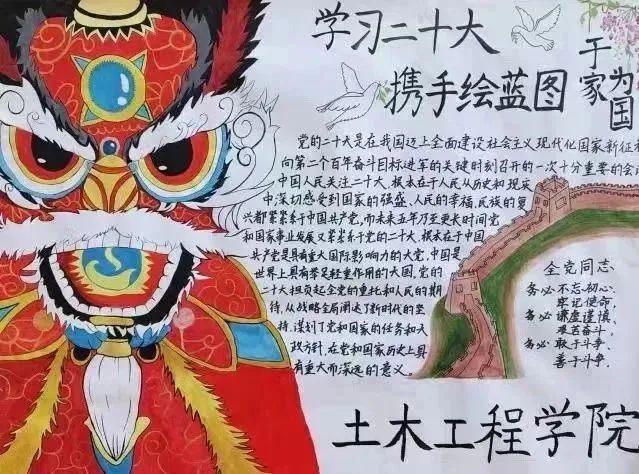 学习二十大
携手绘蓝图
于家为国
党的二十大是在我国迈上全面建设社会主义现代化国家新征
向第二个百年奋斗目标进军的关键时刻召开的一次十分重要的会
中国人民关注二十大，根本在于人民从历史和现实
中深切感受到国家的强盛、人民的幸福、民族的复
兴都紧紧系于中国共产党，而未来五年乃至更长时间党
和国家事业发展又紧紧系于党的二十大，根本在于中国
共产党是具有重大国际影响力的大党，中国是
世界上具有举足轻重作用的大国，党的
二十大担负起全党的重托和人民的期
待，从战略全局阐述了新时代的坚
持，谋划了党和国家的任务和大
政方针，在党和国家历史上具
有重大而深远的意义。
全党同志
务必不忘初心、
牢记使命，
务必谦虚谨慎、
艰苦奋斗，
务必敢于斗争、
善于斗争。
土木工程学院